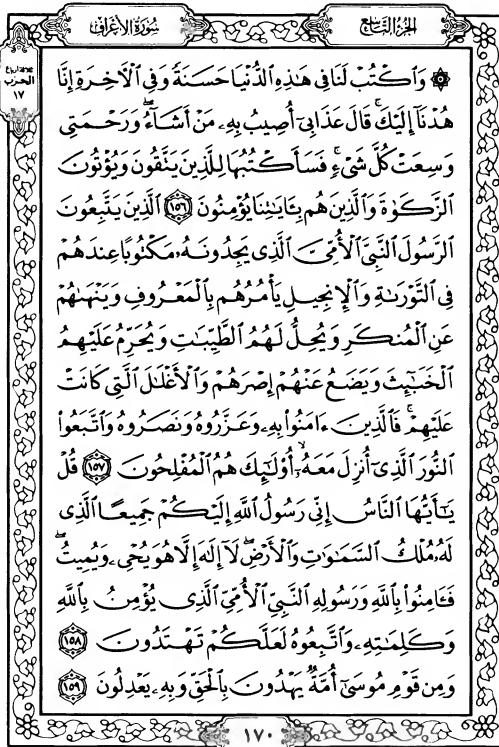 الجزء التاسع
سورة الأعراف
الحزب
١٧
۞ وَٱكۡتُبۡ لَنَا فِي هَٰذِهِ ٱلدُّنۡيَا حَسَنَةٗ وَفِي ٱلۡأٓخِرَةِ إِنَّا
هُدۡنَآ إِلَيۡكَۚ قَالَ عَذَابِيٓ أُصِيبُ بِهِۦ مَنۡ أَشَآءُۖ وَرَحۡمَتِي
وَسِعَتۡ كُلَّ شَيۡءٖۚ فَسَأَكۡتُبُهَا لِلَّذِينَ يَتَّقُونَ وَيُؤۡتُونَ
ٱلزَّكَوٰةَ وَٱلَّذِينَ هُم بِـَٔايَٰتِنَا يُؤۡمِنُونَ ١٥٦ ٱلَّذِينَ يَتَّبِعُونَ
ٱلرَّسُولَ ٱلنَّبِيَّ ٱلۡأُمِّيَّ ٱلَّذِي يَجِدُونَهُۥ مَكۡتُوبًا عِندَهُمۡ
فِي ٱلتَّوۡرَىٰةِ وَٱلۡإِنجِيلِ يَأۡمُرُهُم بِٱلۡمَعۡرُوفِ وَيَنۡهَىٰهُمۡ
عَنِ ٱلۡمُنكَرِ وَيُحِلُّ لَهُمُ ٱلطَّيِّبَٰتِ وَيُحَرِّمُ عَلَيۡهِمُ
ٱلۡخَبَٰٓئِثَ وَيَضَعُ عَنۡهُمۡ إِصۡرَهُمۡ وَٱلۡأَغۡلَٰلَ ٱلَّتِي كَانَتۡ
عَلَيۡهِمۡۚ فَٱلَّذِينَ ءَامَنُواْ بِهِۦ وَعَزَّرُوهُ وَنَصَرُوهُ وَٱتَّبَعُواْ
ٱلنُّورَ ٱلَّذِيٓ أُنزِلَ مَعَهُۥٓۙ أُوْلَٰٓئِكَ هُمُ ٱلۡمُفۡلِحُونَ ١٥٧ قُلۡ
يَٰٓأَيُّهَا ٱلنَّاسُ إِنِّي رَسُولُ ٱللَّهِ إِلَيۡكُمۡ جَمِيعًا ٱلَّذِي
لَهُۥ مُلۡكُ ٱلسَّمَٰوَٰتِ وَٱلۡأَرۡضِۖ لَآ إِلَٰهَ إِلَّا هُوَ يُحۡيِۦ وَيُمِيتُۖ
فَـَٔامِنُواْ بِٱللَّهِ وَرَسُولِهِ ٱلنَّبِيِّ ٱلۡأُمِّيِّ ٱلَّذِي يُؤۡمِنُ بِٱللَّهِ
وَكَلِمَٰتِهِۦ وَٱتَّبِعُوهُ لَعَلَّكُمۡ تَهۡتَدُونَ ١٥٨
وَمِن قَوۡمِ مُوسَىٰٓ أُمَّةٞ يَهۡدُونَ بِٱلۡحَقِّ وَبِهِۦ يَعۡدِلُونَ ١٥٩
١٧٠